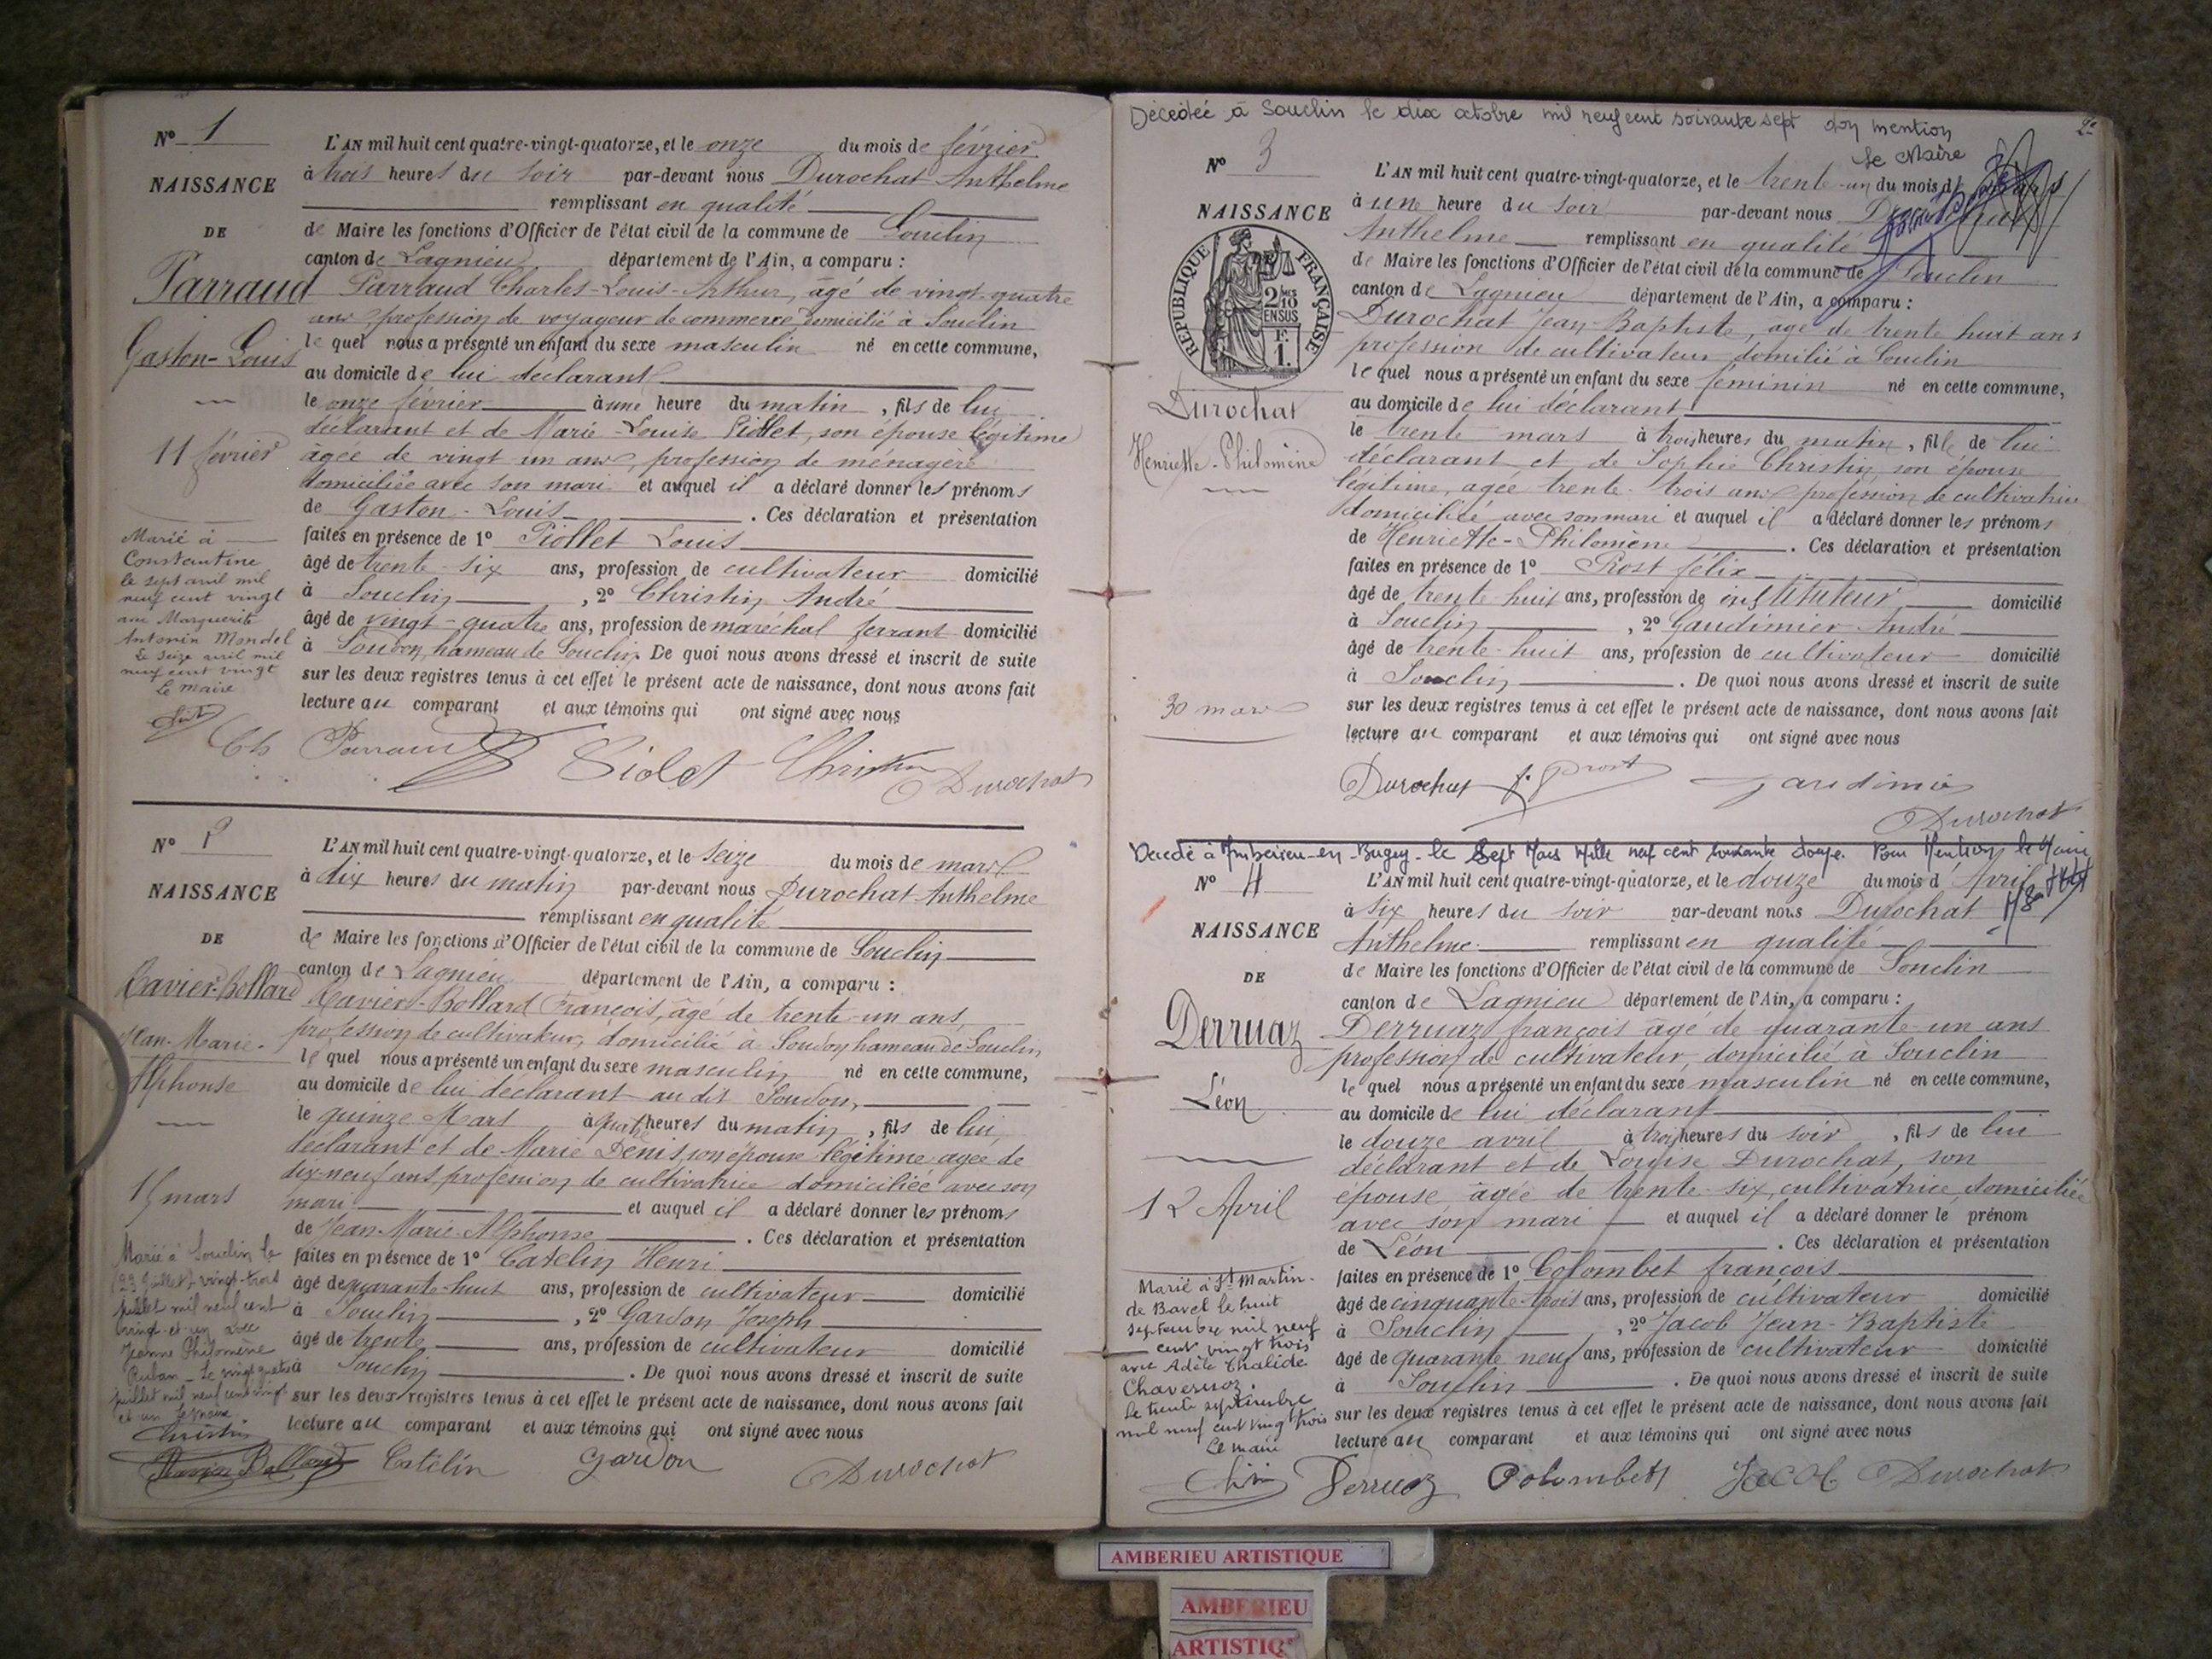 Nº 1
NAISSANCE
DE
Parraud
Gaston-Louis
11 février
Marié à
Constantine
le sept avril mil
neuf cent vingt
avec Marguerite
Antonin Mondel
Le seize avril mil
neuf cent vingt
Le Maire
L'AN mil huit cent quatre-vingt-quatorze, et le onze du mois de février
à trois heures du soir par-devant nous Durochat Anthelme
remplissant en qualité
de Maire les fonctions d'Officier de l'état civil de la commune de Souclin
canton de Lagnieu département de l'Ain, a comparu :
Parraud Charles-Louis-Arthur, âgé de vingt-quatre
ans profession de voyageur de commerce domicilié à Souclin
lequel nous a présenté un enfant du sexe masculin né en cette commune,
au domicile de lui déclarant
le onze février à une heure du matin, fils de lui
déclarant et de Marie-Louise Piollet, son épouse légitime
âgée de vingt un ans, profession de ménagère
domiciliée avec son mari et auquel il a déclaré donner les prénoms
de Gaston-Louis. Ces déclaration et présentation
faites en présence de 1º Piollet Louis
âgé de trente-six ans, profession de cultivateur domicilié
à Souclin, 2º Christin André
âgé de vingt-quatre ans, profession de maréchal ferrant domicilié
à Soudon, hameau de Souclin. De quoi nous avons dressé et inscrit de suite
sur les deux registres tenus à cet effet le présent acte de naissance, dont nous avons fait
lecture au comparant et aux témoins qui ont signé avec nous
Ch Parraud Piolet Christin Durochat
Nº 2
NAISSANCE
DE
Ravier-Bollard
Jean-Marie-
Alphonse
15 mars
Marié à Souclin le
(23 juillet) vingt-trois
juillet mil neuf cent
vingt-et-un avec
Jeanne Philomène
Ruban - Le vingt quatre
juillet mil neuf cent vingt
et un Le Maire
Christin
L'AN mil huit cent quatre-vingt-quatorze, et le seize du mois de mars
à dix heures du matin par-devant nous Durochat Anthelme
remplissant en qualité
de Maire les fonctions d'Officier de l'état civil de la commune de Souclin
canton de Lagnieu département de l'Ain, a comparu :
Ravier-Bollard François, âgé de trente-un ans
profession de cultivateur, domicilié à Soudon hameau de Souclin
lequel nous a présenté un enfant du sexe masculin né en cette commune,
au domicile de lui déclarant au dit Soudon,
le quinze Mars à quatre heures du matin, fils de lui
déclarant et de Marie Denis, son épouse légitime âgée de
dix-neuf ans, profession de cultivatrice domiciliée avec son
mari et auquel il a déclaré donner les prénoms
de Jean-Marie-Alphonse. Ces déclaration et présentation
faites en présence de 1º Catelin Henri
âgé de quarante-huit ans, profession de cultivateur domicilié
à Souclin, 2º Gardon Joseph
âgé de trente ans, profession de cultivateur domicilié
à Souclin. De quoi nous avons dressé et inscrit de suite
sur les deux registres tenus à cet effet le présent acte de naissance, dont nous avons fait
lecture au comparant et aux témoins qui ont signé avec nous
Ravier Bollard Catelin Gardon Durochat
Décédée à Souclin le dix octobre mil neuf cent soixante sept don mention
Le Maire
2e
Nº 3
NAISSANCE
DE
RÉPUBLIQUE FRANÇAISE
2 10
EN SUS
F.
1.
Durochat
Henriette-Philomène
30 mars
L'AN mil huit cent quatre-vingt-quatorze, et le trente-un du mois de mars
à une heure du soir par-devant nous Durochat
Anthelme remplissant en qualité
de Maire les fonctions d'Officier de l'état civil de la commune de Souclin
canton de Lagnieu département de l'Ain, a comparu :
Durochat Jean-Baptiste, âgé de trente huit ans
profession de cultivateur domilié à Souclin
lequel nous a présenté un enfant du sexe féminin né en cette commune,
au domicile de lui déclarant
le trente mars à trois heures du matin, fille de lui
déclarant et de Sophie Christin, son épouse
légitime, agée trente-trois ans profession de cultivatrice
domiciliée avec son mari et auquel il a déclaré donner les prénoms
de Henriette-Philomène. Ces déclaration et présentation
faites en présence de 1º Prost félix
âgé de trente huit ans, profession de instituteur domicilié
à Souclin, 2º Gaudimier André
âgé de trente-huit ans, profession de cultivateur domicilié
à Souclin. De quoi nous avons dressé et inscrit de suite
sur les deux registres tenus à cet effet le présent acte de naissance, dont nous avons fait
lecture au comparant et aux témoins qui ont signé avec nous
Durochat f. Prost Gaudimier
Durochat
Décédé à Ambérieu-en-Bugey - le Sept Mars Mille neuf cent soixante douze. Pour Mention le Maire
Nº 4
NAISSANCE
DE
Derruaz
Léon
12 Avril
Marié à St Martin-
de Bavel le huit
septembre mil neuf
cent vingt trois
avec Adèle Thalide
Chaverruoz.
Le trente septembre
mil neuf cent vingt trois
Le Maire
L'AN mil huit cent quatre-vingt-quatorze, et le douze du mois d'Avril
à six heures du soir par-devant nous Durochat
Anthelme remplissant en qualité
de Maire les fonctions d'Officier de l'état civil de la commune de Souclin
canton de Lagnieu département de l'Ain, a comparu :
Derruaz françois âgé de quarante-un ans
profession de cultivateur, domicilié à Souclin
lequel nous a présenté un enfant du sexe masculin né en cette commune,
au domicile de lui déclarant
le douze avril à trois heures du soir, fils de lui
déclarant et de Louise Durochat, son
épouse âgée de trente-six, cultivatrice, domiciliée
avec son mari et auquel il a déclaré donner le prénom
de Léon. Ces déclaration et présentation
faites en présence de 1º Colombet françois
âgé de cinquante-trois ans, profession de cultivateur domicilié
à Souclin, 2º Jacob Jean-Baptiste
âgé de quarante neuf ans, profession de cultivateur domicilié
à Souclin. De quoi nous avons dressé et inscrit de suite
sur les deux registres tenus à cet effet le présent acte de naissance, dont nous avons fait
lecture au comparant et aux témoins qui ont signé avec nous
Derruaz Colombet Jacob Durochat
AMBERIEU ARTISTIQUE
AMBERIEU
ARTISTIQ